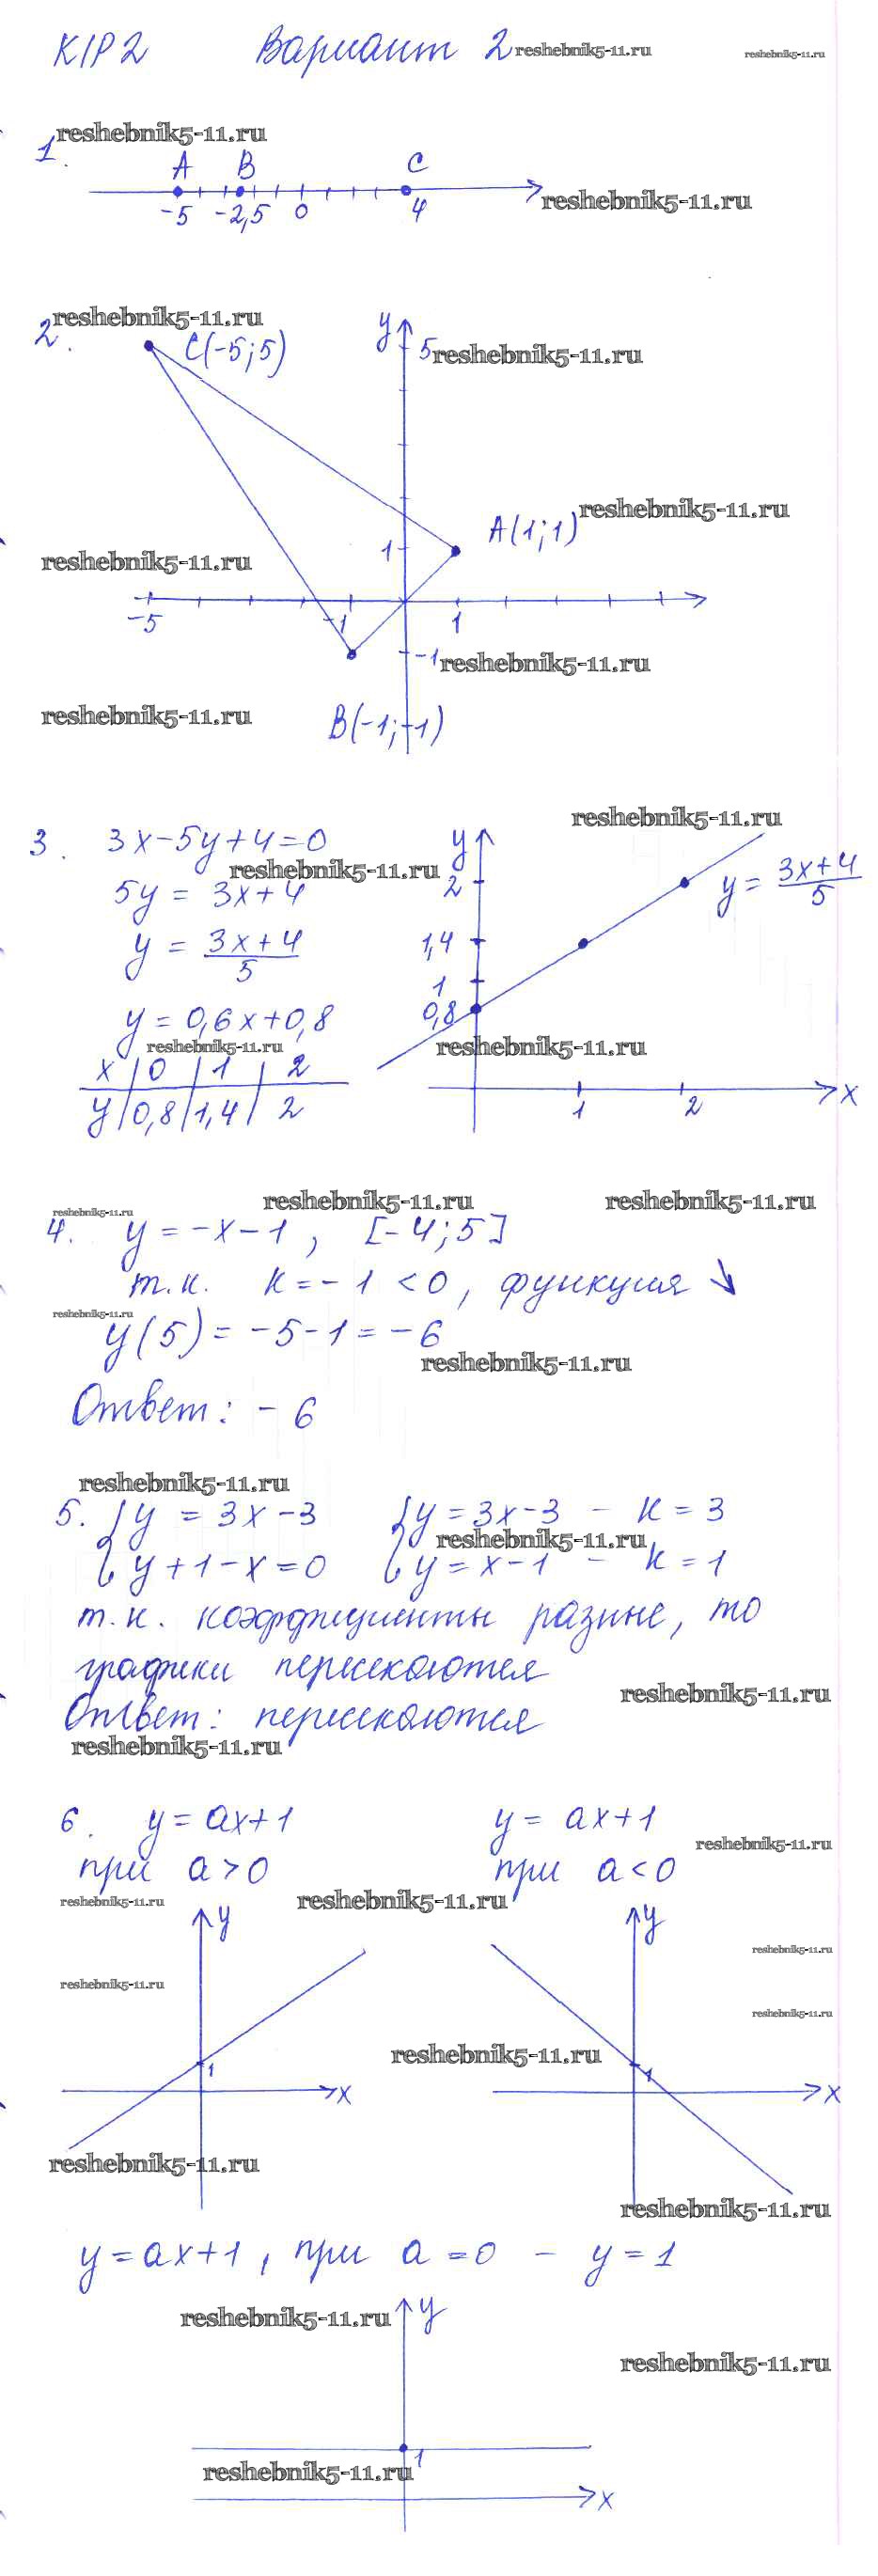 К/Р 2 Вариант 2 reshebnik5-11.ru reshebnik5-11.ru
reshebnik5-11.ru
1.
A B C
-5 -2,5 0 4 reshebnik5-11.ru
reshebnik5-11.ru
2. C(-5;5) y 5 reshebnik5-11.ru
A(1;1) reshebnik5-11.ru
reshebnik5-11.ru 1
-5 -1 1
-1 reshebnik5-11.ru
reshebnik5-11.ru B(-1;-1)
reshebnik5-11.ru
3. 3x-5y+4=0 y
reshebnik5-11.ru
5y = 3x+4 2 y = 3x+4/5
y = 3x+4/5 1,4
1
y = 0,6x+0,8 0,8
reshebnik5-11.ru reshebnik5-11.ru
x | 0 | 1 | 2
y | 0,8 | 1,4 | 2
1 2 x
reshebnik5-11.ru reshebnik5-11.ru reshebnik5-11.ru
4. y = -x-1, [-4;5]
т.к. k = -1 < 0, функция ↘
reshebnik5-11.ru
y(5) = -5-1 = -6
reshebnik5-11.ru
Ответ: -6
reshebnik5-11.ru
5. { y = 3x-3 { y = 3x-3 - k = 3
reshebnik5-11.ru
{ y+1-x=0 { y = x-1 - k = 1
т.к. коэффициенты разные, то
графики пересекаются
reshebnik5-11.ru
Ответ: пересекаются
reshebnik5-11.ru
6. y = ax+1 y = ax+1
reshebnik5-11.ru
при a>0 при a<0
reshebnik5-11.ru reshebnik5-11.ru
y y
reshebnik5-11.ru
reshebnik5-11.ru
reshebnik5-11.ru
reshebnik5-11.ru
1 1
x x
reshebnik5-11.ru
reshebnik5-11.ru
y = ax+1, при a = 0 - y = 1
reshebnik5-11.ru y
reshebnik5-11.ru
1
reshebnik5-11.ru
x